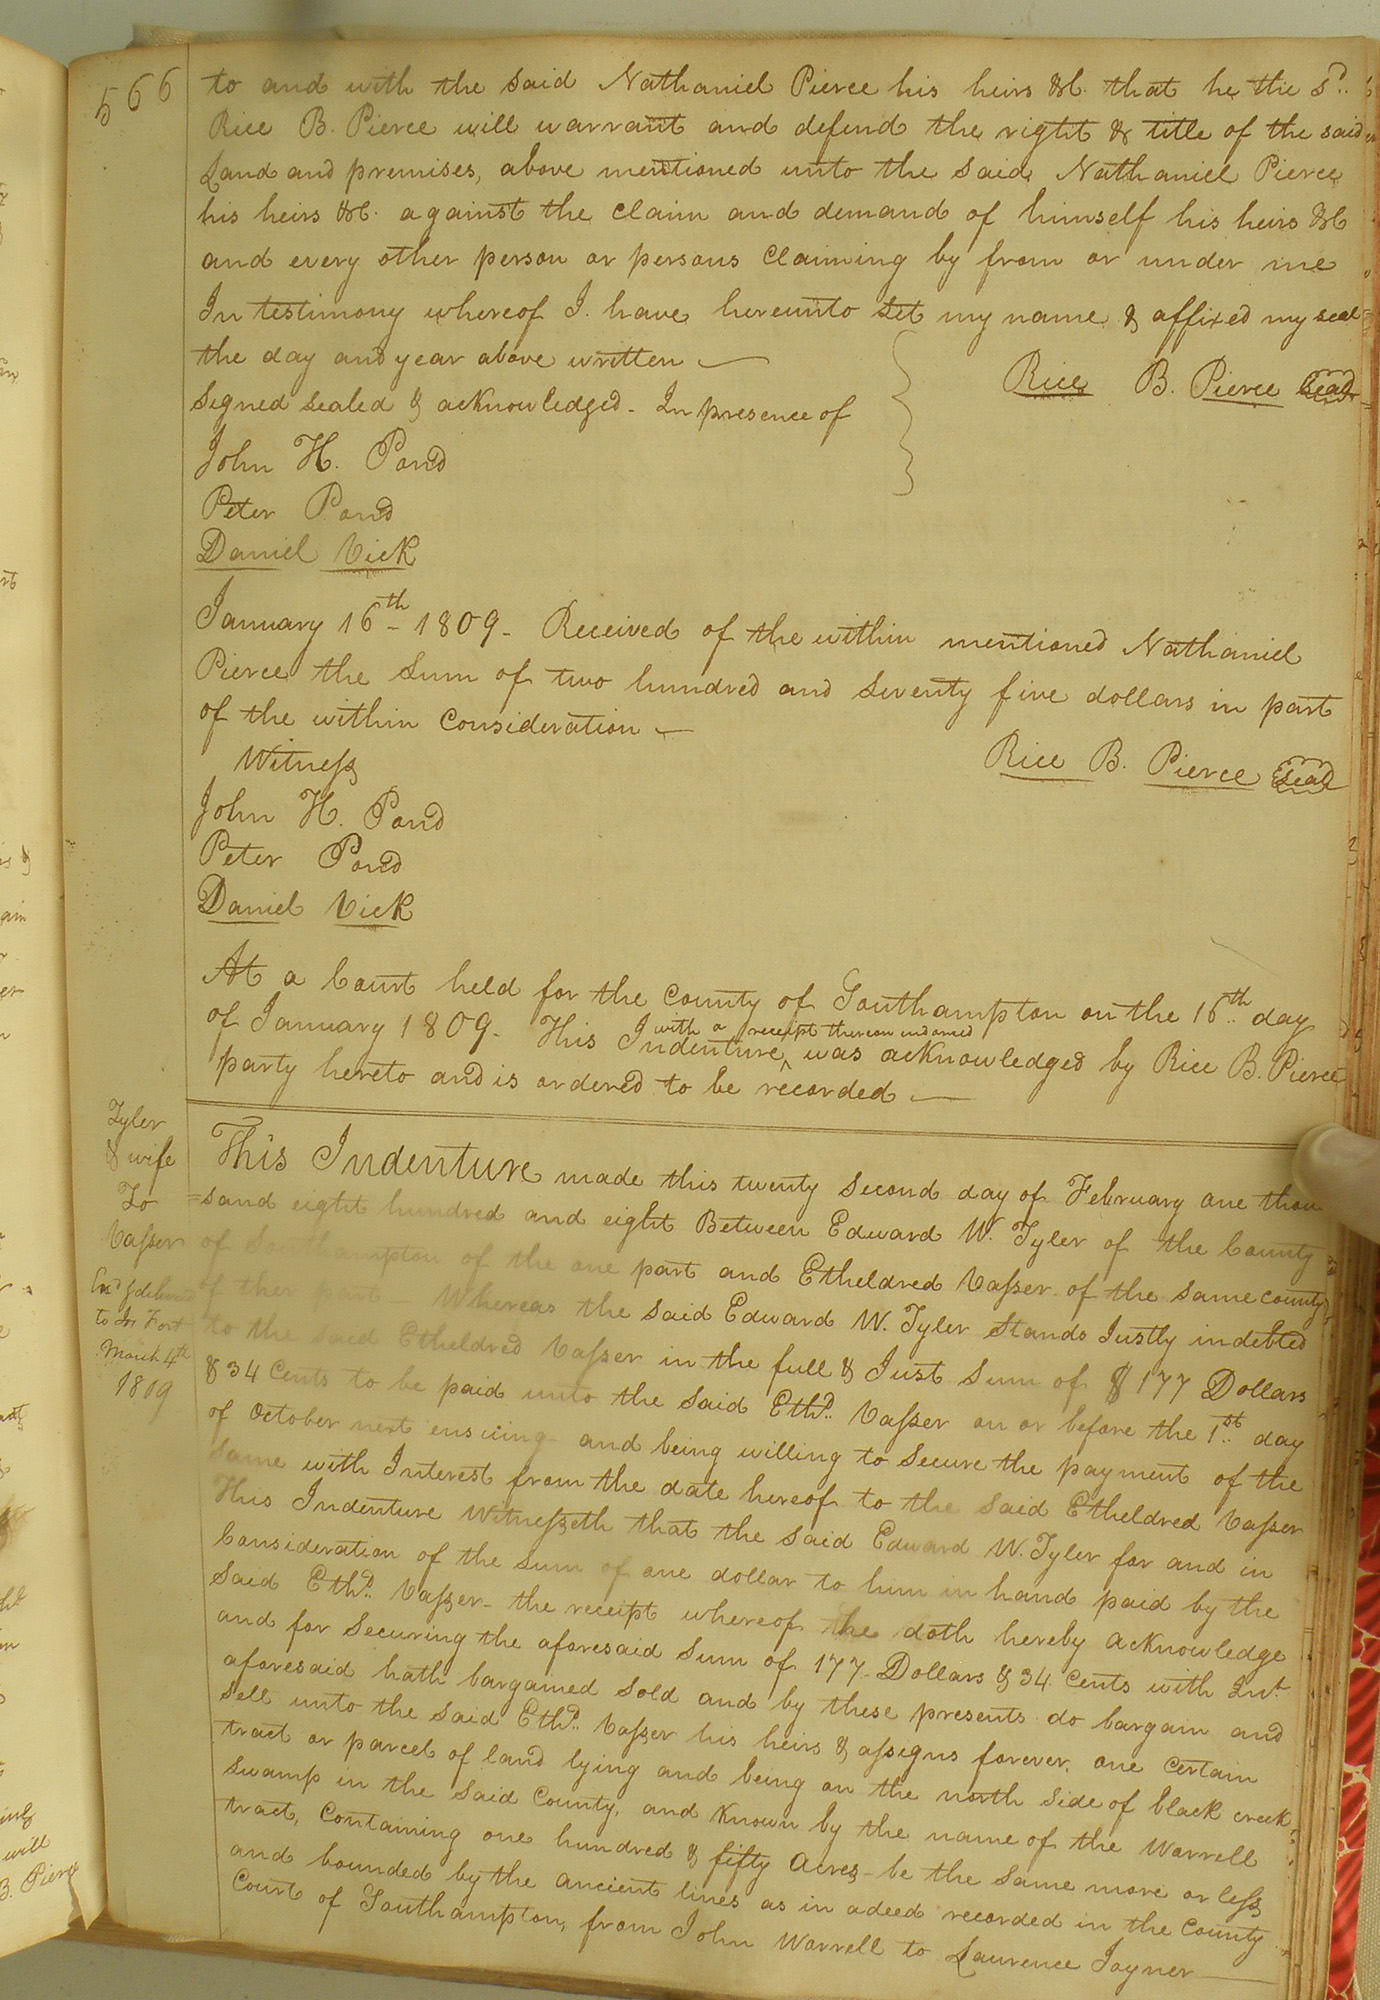 566
to and with the said Nathaniel Pierce his heirs &c. that he the sd.
Rice B. Pierce will warrant and defend the right & title of the said
Land and premises, above mentioned unto the said Nathaniel Pierce
his heirs &c. against the claim and demand of himself his heirs &c
and every other person or persons Claiming by from or under me
In testimony whereof I have hereunto set my name & affixed my seal
the day and year above written —
Rice B. Pierce seal
Signed sealed & acknowledged - In presence of
John H. Pond
Peter Pond
Daniel Vick
January 16th - 1809 - Received of the within mentioned Nathaniel
Pierce the Sum of two hundred and seventy five dollars in part
of the within Consideration —
Rice B. Pierce seal
Witness
John H. Pond
Peter Pond
Daniel Vick
At a Court held for the County of Southampton on the 16th day
of January 1809 - This Indenture with a receipt thereon indorced was acknowledged by Rice B. Pierce
party hereto and is ordered to be recorded —
Tyler
& wife
To
Vasser
to Jos Fort
March 4th
1819
This Indenture made this twenty second day of February one thou
=sand eight hundred and eight Between Edward W. Tyler of the County
of Southampton of the one part and Etheldred Vasser of the same county
of ther part Whereas the said Edward W. Tyler Stands Justly indebted
to the said Etheldred Vasser in the full & Just Sum of $177 Dollars
& 34 Cents to be paid unto the said Ethd. Vasser on or before the 1st. day
of October next ensuing - and being willing to secure the payment of the
same with Interest from the date hereof to the said Etheldred Vasser
This Indenture Witnesseth that the said Edward W. Tyler for and in
Consideration of the sum of one dollar to him in hand paid by the
said Ethd. Vasser - the receipt whereof he doth hereby acknowledge
and for Securing the aforesaid Sum of 177 Dollars & 34 Cents with Int.
aforesaid hath bargained sold and by these presents do bargain and
sell unto the said Ethd. Vasser his heirs & assigns forever, one Certain
tract or parcel of land lying and being on the north side of black creek
Swamp in the said County, and known by the name of the Worrell
tract, Containing one hundred & fifty Acres - be the same more or less
and bounded by the ancient lines as in a deed recorded in the County
Court of Southampton, from John Worrell to Laurence Joyner —